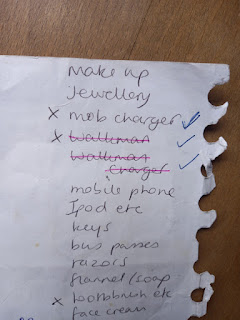 Make up
Jewellery
x mob charger ✓
x Walkman ✓
Walkman
charger ✓
mobile phone
Ipod etc
keys
bus passes
razors
flannel/soap
x toothbrush etc
face cream